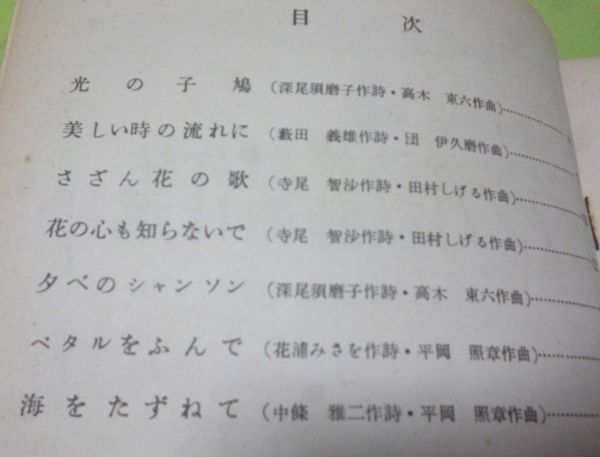 目次
光の子鳩 (深尾須磨子作詩・高木 東六作曲)
美しい時の流れに (藪田 義雄作詩・団 伊久磨作曲)
さざん花の歌 (寺尾 智沙作詩・田村しげる作曲)
花の心も知らないで (寺尾 智沙作詩・田村しげる作曲)
夕べのシャンソン (深尾須磨子作詩・高木 東六作曲)
ペタルをふんで (花浦みさを作詩・平岡 照章作曲)
海をたずねて (中條 雅二作詩・平岡 照章作曲)